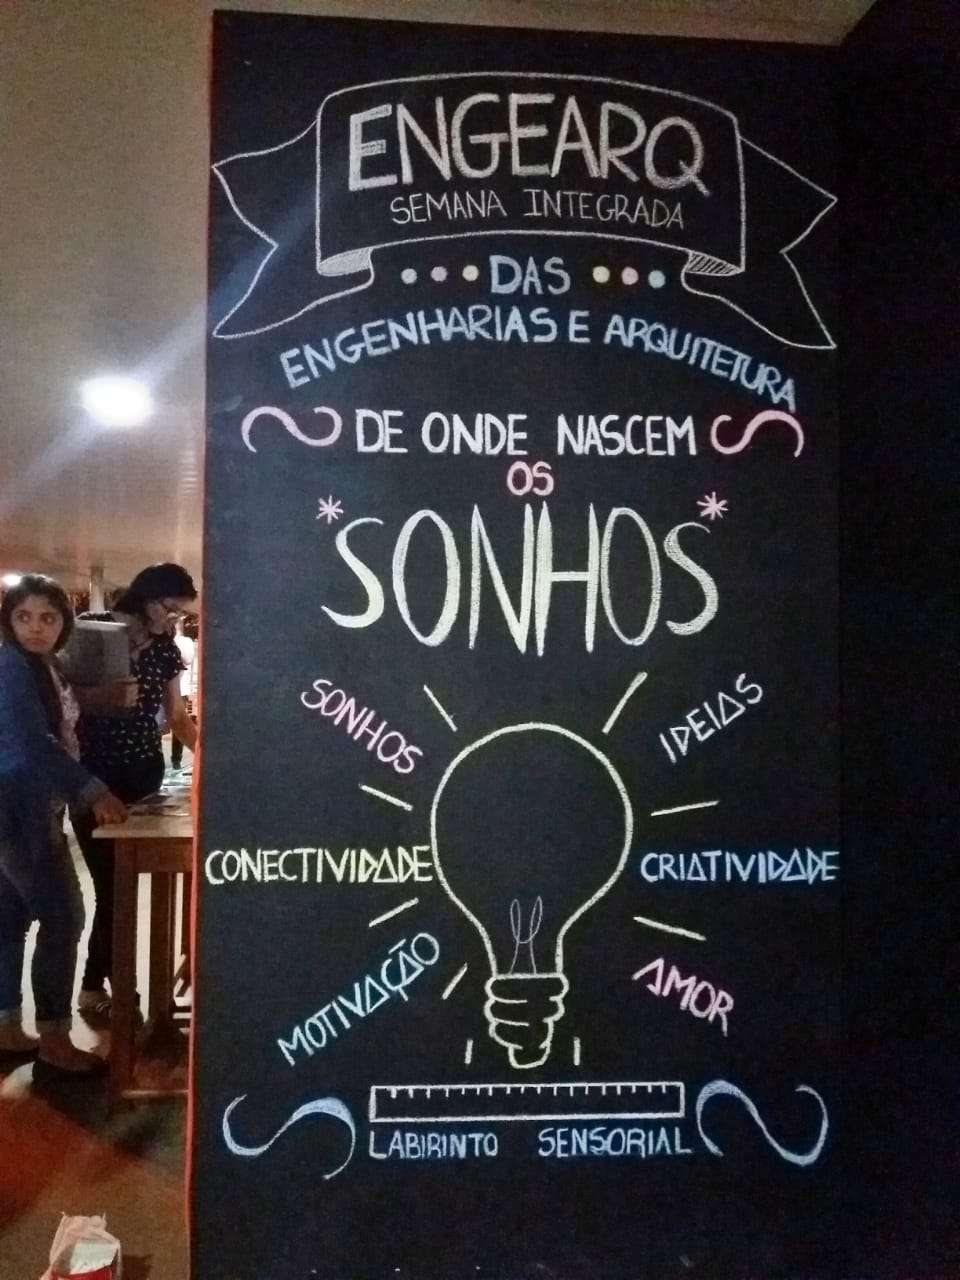 ENGEARQ
SEMANA INTEGRADA
DAS
ENGENHARIAS E ARQUITETURA
DE ONDE NASCEM
OS
*SONHOS*
SONHOS
IDEIAS
CONECTIVIDADE
CRIATIVIDADE
MOTIVAÇÃO
AMOR
LABIRINTO SENSORIAL